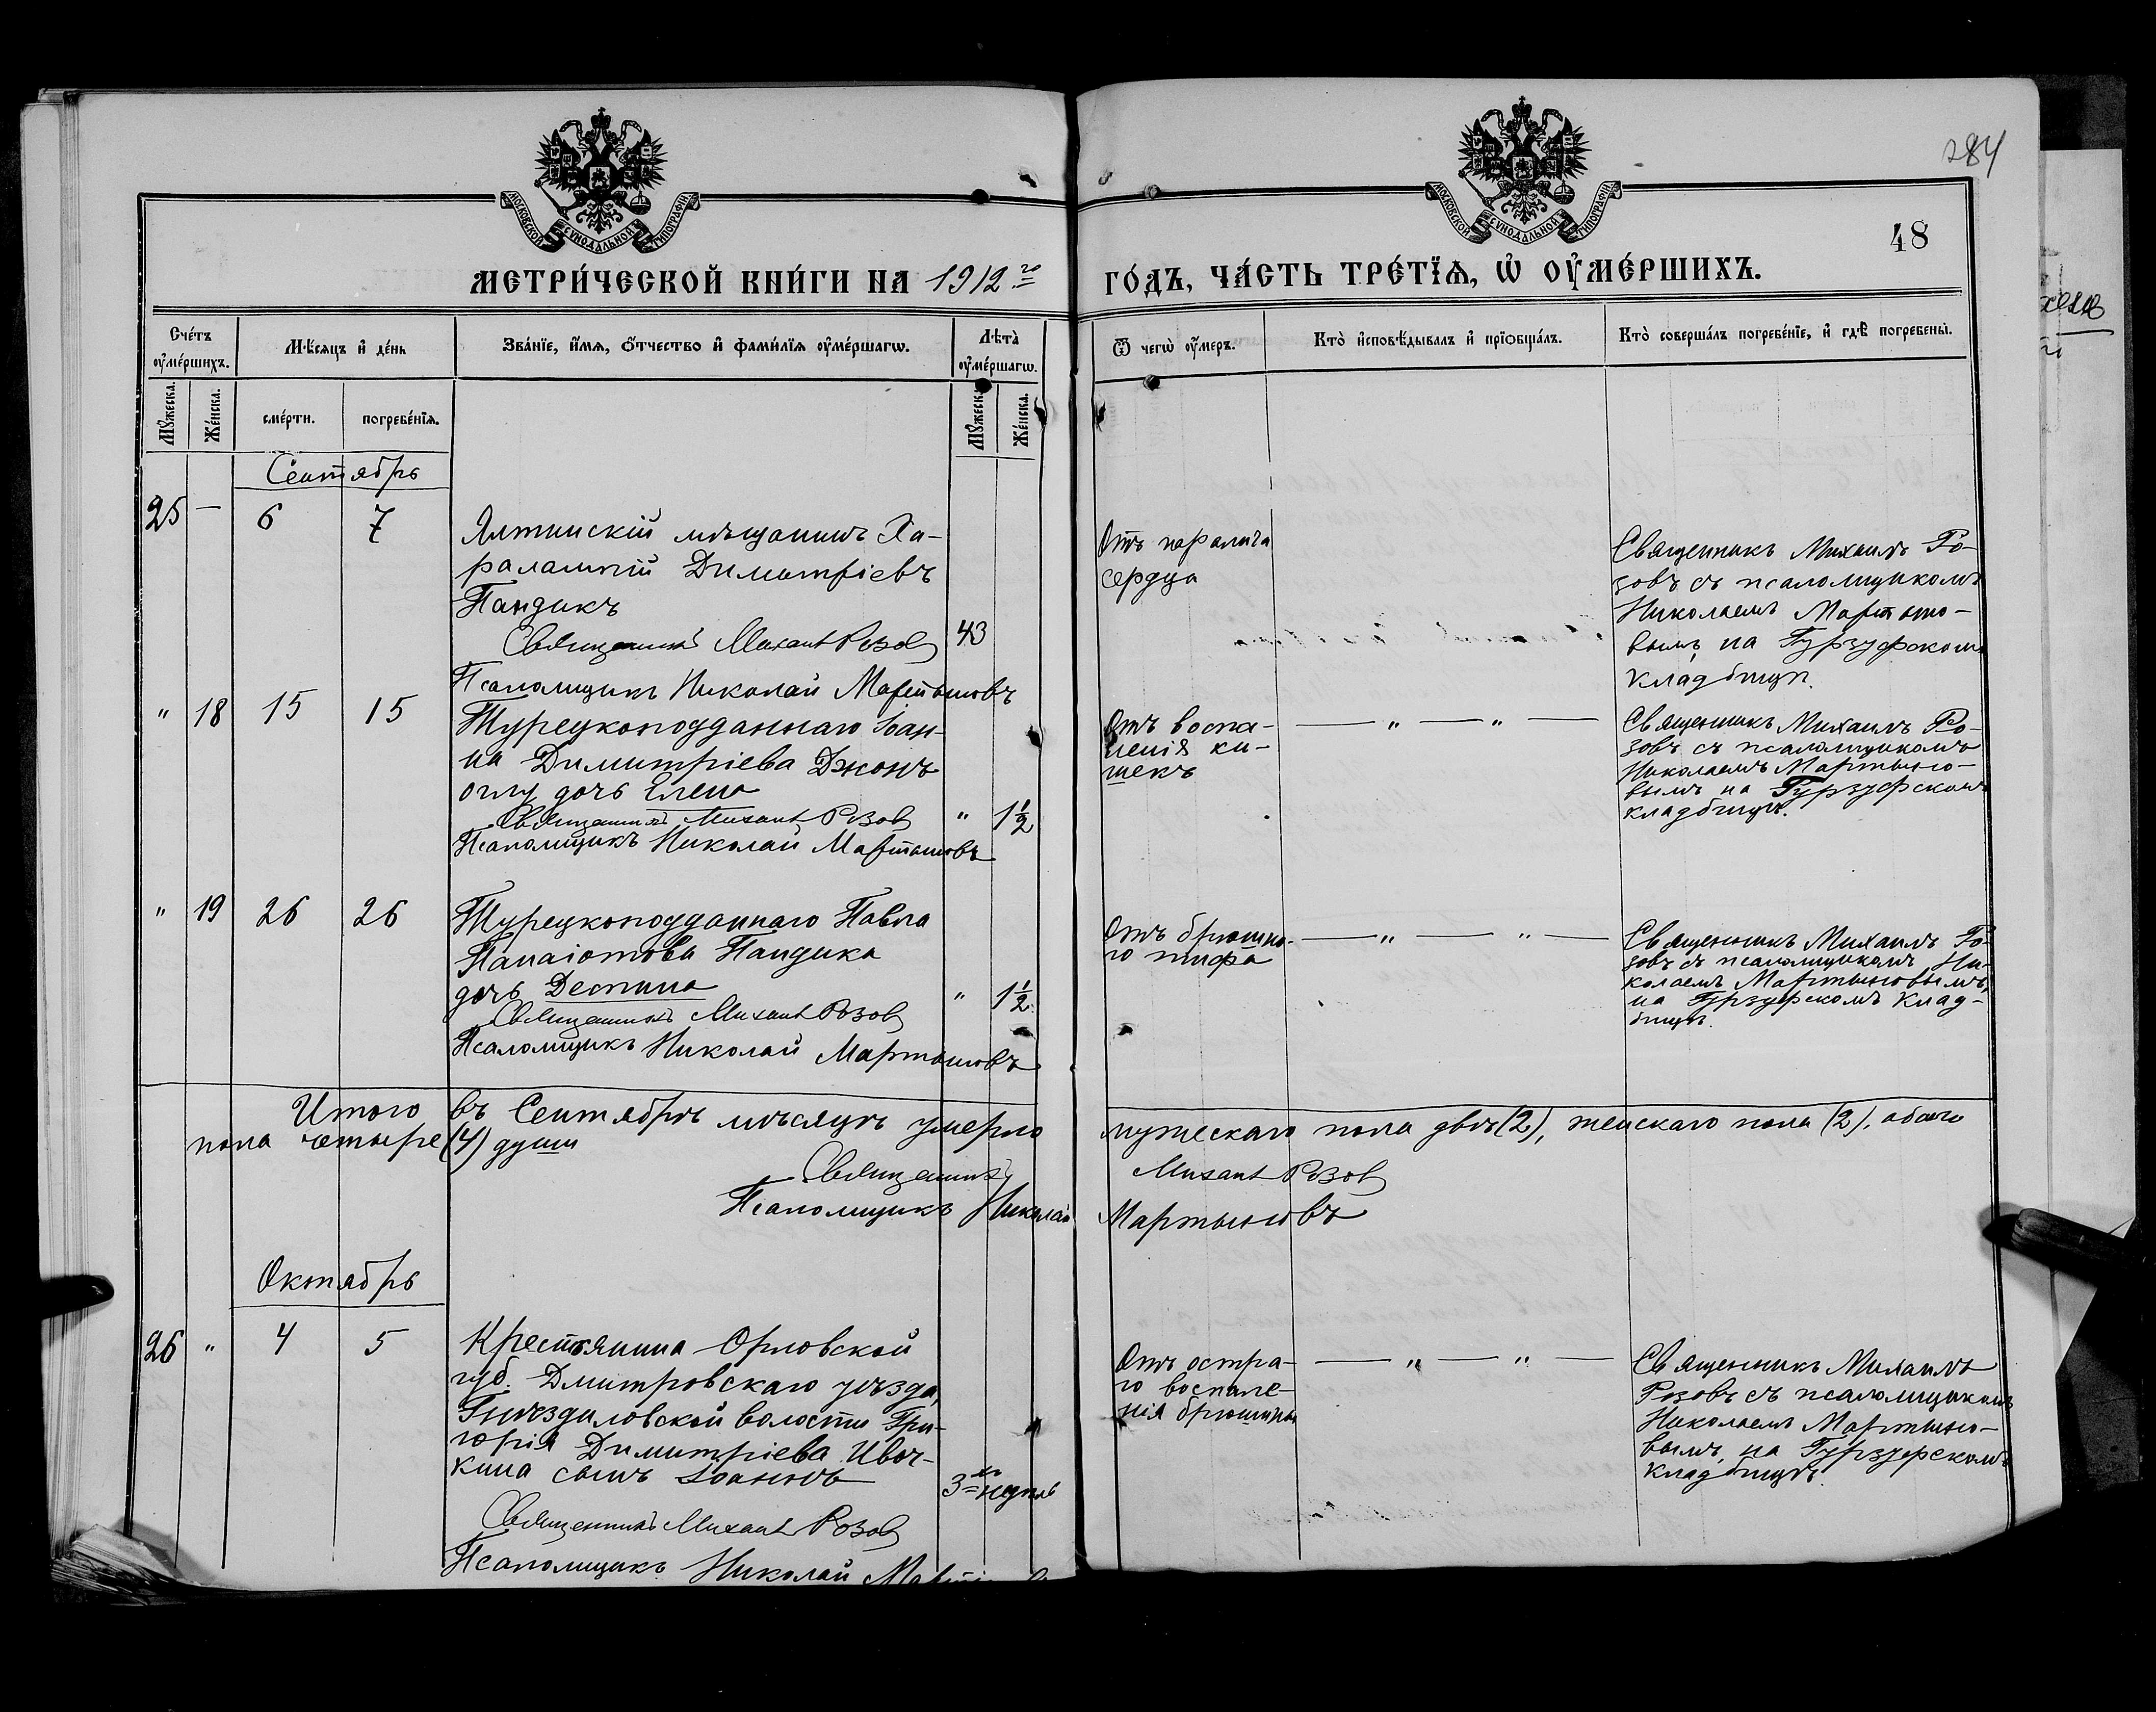 МОСКОВСКОЙ СѴНОДАЛЬНОЙ ТИПОГРАФІИ
МОСКОВСКОЙ СѴНОДАЛЬНОЙ ТИПОГРАФІИ
284
48
МЕТРИ́ЧЕСКОЙ КНИ́ГИ НА 1912 го
ГО́ДЪ, ЧА́СТЬ ТРЕ́ТЇѦ, Ѡ҆ ОУ҆МЕ́РШИХЪ.
Сче́тъ оу҆ме́ршихъ.
Мѣ́сяцъ и҆ де́нь
Зва́нїе, и҆́мя, ѻ҆́тчество и҆ фами́лїя оу҆ме́ршагѡ.
Лѣ̀та оу҆ме́ршагѡ.
Ѿ чегѡ̀ оу҆́меръ.
Кто̀ и҆сповѣ́дывалъ и҆ прїѡбща́лъ.
Кто̀ соверша́лъ погребе́нїе, и҆ гдѣ̀ погребены̀.
Мꙋ́жеска.
Же́нска.
сме́рти.
погребе́нїѧ.
Мꙋ́жеска.
Же́нска.
Сентябрь
25 — 6 7
Ялтинскій мѣщанинъ Ха-
ралампій Димитріевъ
Пандикъ
43
Священникъ Михаилъ Розовъ
Псаломщикъ Николай Мартыновъ
Отъ паралича
сердца
Священникъ Михаилъ Ро-
зовъ съ псаломщикомъ
Николаемъ Мартыно-
вымъ, на Гурзуфскомъ
кладбищѣ.
" 18 15 15
Турецкоподданнаго Іоан-
на Димитріева Джонъ
оглу дочь Елена
" 1½
Священникъ Михаилъ Розовъ
Псаломщикъ Николай Мартыновъ
Отъ воспа-
ленія ки-
шекъ
— " — " —
Священникъ Михаилъ Ро-
зовъ съ псаломщикомъ
Николаемъ Мартыно-
вымъ на Гурзуфскомъ
кладбищѣ.
" 19 26 26
Турецкоподданнаго Павла
Панаіотова Пандика
дочь Деспина
" 1½
Священникъ Михаилъ Розовъ
Псаломщикъ Николай Мартыновъ
Отъ брюшно-
го тифа
— " — " —
Священникъ Михаилъ Ро-
зовъ съ псаломщикомъ Ни-
колаемъ Мартыновымъ,
на Гурзуфскомъ клад-
бищѣ.
Итого въ Сентябрѣ мѣсяцѣ умерло мужескаго пола двѣ (2), женскаго пола (2), обоего
пола четыре (4) души
Священникъ Михаилъ Розовъ
Псаломщикъ Николай Мартыновъ
Октябрь
26 " 4 5
Крестьянина Орловской
губ. Дмитровскаго уѣзда,
Гнѣздиловской волости Гри-
горія Димитріева Ивоч-
кина сынъ Іоаннъ
3 хъ недѣль
Священникъ Михаилъ Розовъ
Псаломщикъ Николай
Отъ остра-
го воспале-
нія брюшины
— " — " —
Священникъ Михаилъ
Розовъ съ псаломщикомъ
Николаемъ Мартыно-
вымъ, на Гурзуфскомъ
кладбищѣ.